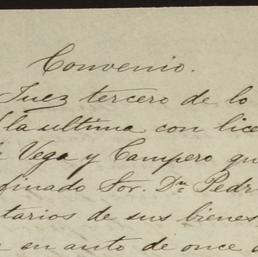 Convenio.
Juez tercero de lo
la ultima con lice
Vega y Campero qu
finado Sor. Dn. Pedr
tarios de sus bienes
en auto de once